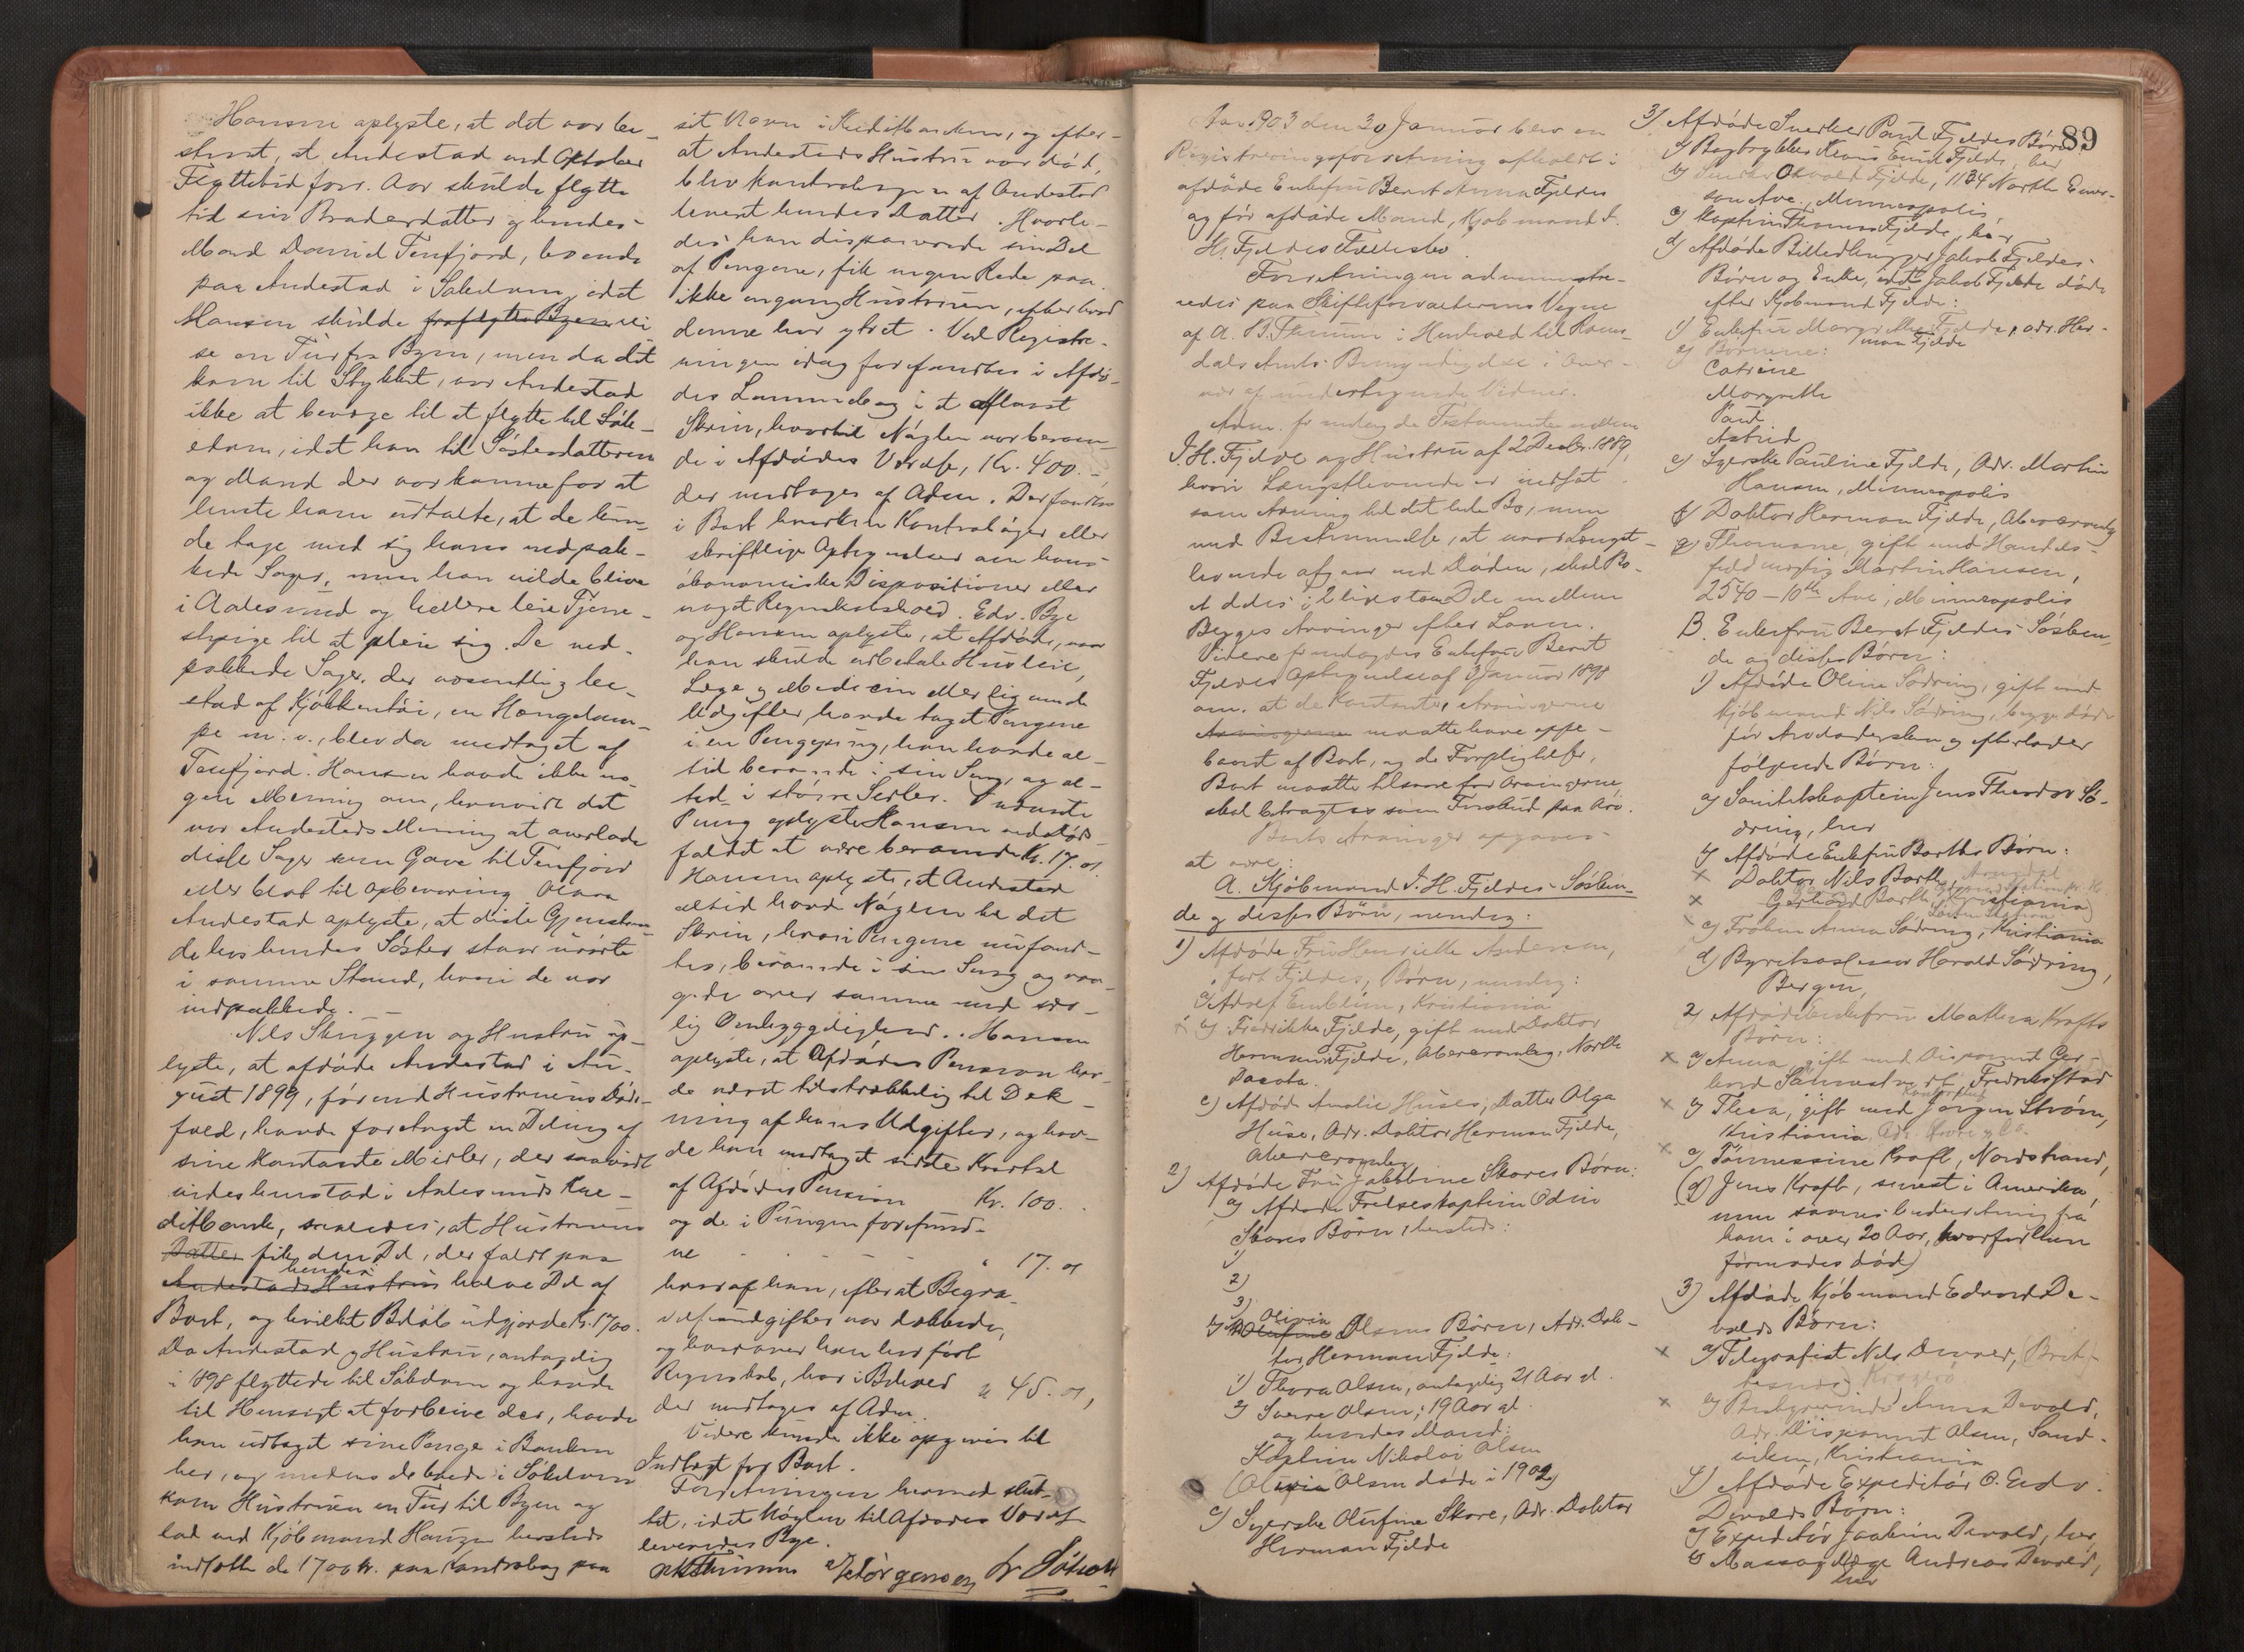 Hansen oplyste, at det var be-
stemt, at Andestad ved Oktober
Flyttetid forr. Aar skulde flytte
til sin Broderdatter og hendes
Mand Daniel Tenfjord, boende
paa Andestad i Søkelven, idet
Hansen skulde fraflytte Byen rei
se en Tur fra Byen, men da det
kom til Stykket, var Andestad
ikke at bevæge til at flytte til Søk-
elven, idet han til Søsterdatteren
og Mand der var komne for at
hente ham udtalte, at de kun-
de tage med sig hans nedpak-
kede Sager, men han vilde blive
i Aalesund og hellere leie Tjene-
stepige til at pleie sig. De ned-
pakkede Sager, der væsentlig be-
stod af Kjøkkentøi, en Hængelam-
pe m. v., blev da medtaget af
Tenfjord. Hansen havde ikke no
gen Mening om, hvorvidt det
var Andestads Mening at overlade
disse Sager som Gave til Tenfjord
eller blot til Opbevaring. Olava
Andestad oplyste, at disse Gjenstan-
de hos hendes Søster staar urørte
i samme Stand, hvori de var
indpakkede.
Nils Skuggen og Hustru op-
lyste, at afdøde Andestad i Au-
gust 1899, før end Hustruens Døds-
fald, havde foretaget en Deling af
sine kontante Midler, der saavidt
vides henstod i Aalesunds Kre-
ditbank, saaledes, at Hustruens
Datter fik den Del, der faldt paa
hendes
Andestads Hustrus halve Del af
Boet, og hvilket Beløb udgjorde Kr. 1700.
Da Andestad og Hustru, antagelig
i 1898 flyttede til Søkelven og havde
til Hensigt at forblive der, havde
han udtaget sine Penge i Banken
her, og medens de boede i Søkelven
kom Hustruen en Tur til Byen og
lod ved Kjøbmand Hauge hersteds
indsætte de 1700 Kr. paa Kontrabog paa
sit Navn i Kreditbanken, og efter-
at Andestads Hustru var død,
blev Kontrabogen af Andestad
levert hendes Datter. Hvorle-
des han disponerede sin Del
af Pengene, fik ingen Rede paa.
ikke engang Hustruen, efter hvad
denne har ytret. Ved Registre-
ringen idag forefandtes i Afdø-
des Lommebog i et aflaast
Skrin, hvortil Nøglen var beroen-
de i Afdødes Værelse, Kr. 400.-,
der medtages af Adm. Der fandtes
i Boet hverken Kontrabøger eller
skriftlige Optegnelser om hans
økonomiske Dispositioner eller
noget Regnskabsblad. Edv. Bye
og Hansen oplyste, at Afdøde, naar
han skulde udbetale Husleie,
Læge og Medicin eller lignende
Udgifter, havde taget Pengene
i en Pengepung, han havde al-
tid beroende i sin Seng, og al-
tid i større Sedler. I nævnte
Pung oplyste Hansen ved Døds-
faldet at være beroende Kr. 17.01
Hansen oplyste, at Andestad
altid havde Nøglen til det
Skrin, hvori Pengene nu fand-
tes, beroende i sin Seng og vaa-
gede over samme med sær-
lig Omhyggelighed. Hansen
oplyste, at Afdødes Pension hav-
de været tilstrækkelig til Dek-
ning af hans Udgifter, og hav-
de han modtaget sidste Kvartal
af Afdødes Pension Kr. 100.
og de i Pungen forefund-
ne " 17.01
hvoraf han, efterat Begra-
velsesudgifter var dækkede,
og hvorover han har ført
Regnskab, har i Behold " 45.01,
der modtages af Adm.
Videre kunde ikke opgives til
Indtægt for Boet.
Forretningen hermed slut-
tet, idet Nøglen til Afdødes Værelse
leveredes Bye.
89
Aar 1903 den 30 Januar blev en
Registreringsforretning afholdt i
afdøde Enkefru Berit Anna Fjeldes
og før afdøde Mand, Kjøbmand J.
H. Fjeldes Fællesbo.
Forretningen administre-
redes paa Skifteforvalterens Vegne
af A. B. Thinum i Henhold til Roms-
dals Amts Bemyndigelse i Over-
vær af undertegnede Vidner.
Adm. fremlagde Testamente mellem
J. H. Fjelde og Hustru af 2 Decbr. 1889,
hvori Længstlevende er indsat
som Arving til det hele Bo, men
med Bestemmelse, at naar Længst-
levende afgaar ved Døden, skal Bo-
et deles i 2 lige store Dele mellem
Begges Arvinger efter Loven.
Videre fremlagdes Enkefru Berit
Fjeldes Optegnelse af 3 Januar 1898
om, at de Kontanter, Arvingerne
Arvingerne maatte have oppe-
baaret af Boet, og de Forpligtelser,
Boet maatte tilsvare for Arvingerne,
skal betragtes som Forskud paa Arv.
Boets Arvinger opgaves
at være:
A. Kjøbmand J. H. Fjeldes Søsken-
de og disses Børn, nemlig:
1) Afdøde Fru Henriette Andersen,
født Fjeldes, Børn, nemlig:
a) Adolf Emblem, Kristiania
x b) Fredrikke Fjelde, gift med Doktor
Herman Fjelde, Abercrombie, North
Dacota.
c) Afdøde Amalie Huses, Datter Olga
Huse, Adr. Doktor Herman Fjelde,
Abercrombie
2) Afdøde Fru Jakobine Skares Børn:
a) Afdøde Frelseskaptein Odin
Skares Børn, hersteds:
1)
2)
3)
Olivia
b) Olufine Olsens Børn, Adr. Dok-
tor Herman Fjelde:
1) Thora Olsen, antagelig 21 Aar gl.
2) Sverre Olsen, 19 Aar gl.
og hendes Mand:
Kaptein Nikolai Olsen
(Olivia Olsen døde i 1902)
c) Syerske Olufine Skare, Adr. Doktor
Herman Fjelde
3) Afdøde Snedker Paul Fjeldes Børn:
a) Bogtrykker Claus Emil Fjelde, her
b) Snedker Osvald Fjelde, 1134 North Emer-
son Ave., Minneapolis
c) Kaptein Thomas Fjelde, her
d) Afdøde Billedhugger Jakob Fjeldes
Børn og Enke, idet Jakob Fjelde døde
efter Kjøbmand Fjelde:
1) Enkefru Margrethe Fjelde, adr. Her-
man Fjelde
2) Børnene:
Catrine
Margrethe
Paul
Astrid
e) Syerske Pauline Fjelde, Adr. Martin
Hansen, Minneapolis
f) Doktor Herman Fjelde, Abercrombie
g) Thomane, gift med Handels-
fuldmægtig Martin Hansen,
2540 - 10th Ave, Minneapolis
B. Enkefru Berit Fjeldes Søsken-
de og disses Børn:
1) Afdøde Oline Sødring, gift med
Kjøbmand Nils Sødring, begge døde
før Arveladersken og efterlader
følgende Børn:
a) Sanitetskaptein Jens Theodor Sø-
dring, her
b) Afdøde Enkefru Barths Børn:
x Doktor Nils Barth, Arendal
x Gerhard Barth, Kristiania
x c) Frøken Anna Sødring, Kristiania
d) Byretsas[sessor] Harald Sødring,
Bergen,
2) Afdøde Enkefru Mathea Krafts
Børn:
x a) Anna, gift med Disponent Ger-
hard Sannes, Fredrikstad
x b) Thea, gift med Jørgen Strøm,
Kristiania
x c) Tønnessine Kraft, Nordstrand,
(d) Jens Kraft, senest i Amerika,
men savnes Underretning fra
ham i over 20 Aar, hvorfor han
formodes død)
3) Afdøde Kjøbmand Edvard De-
volds Børn:
x a) Telegrafist Nils Devold,
Kragerø
x b) Bestyrerinde Anna Devold,
Adr. Disponent Olsen, Sand-
viken, Kristiania
4) Afdøde Expeditør O. Edv.
Devolds Børn:
a) Expeditør Joakim Devold, her,
b) Massagelæge Andreas Devold,
her